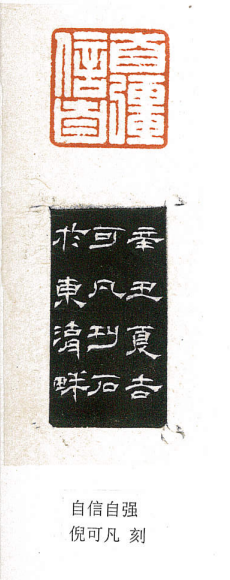 自信自彊
辛丑夏吉
可凡刊石
於東畔
自信自强
倪可凡 刻